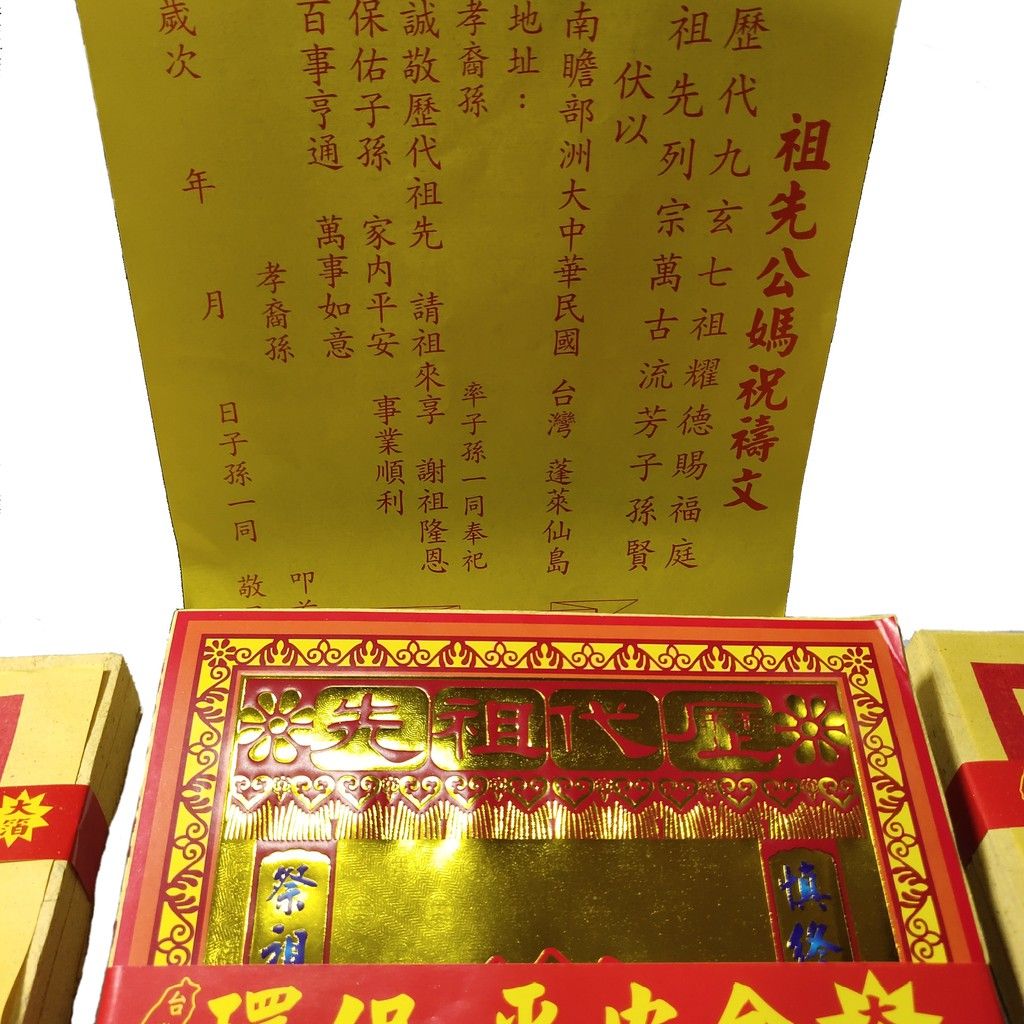 祖先公媽祝禱文
歷代九玄七祖耀德賜福庭
祖先列宗萬古流芳子孫賢
伏以
南瞻部洲大中華民國 台灣 蓬萊仙島
地址：
孝裔孫 率子孫一同奉祀
誠敬歷代祖先 請祖來享 謝祖隆恩
保佑子孫 家內平安 事業順利
百事亨通 萬事如意
孝裔孫 叩
歲次 年 月 日子孫一同 敬
歷代祖先
慎終
祭祖
台
環保 平安金
大
大箔